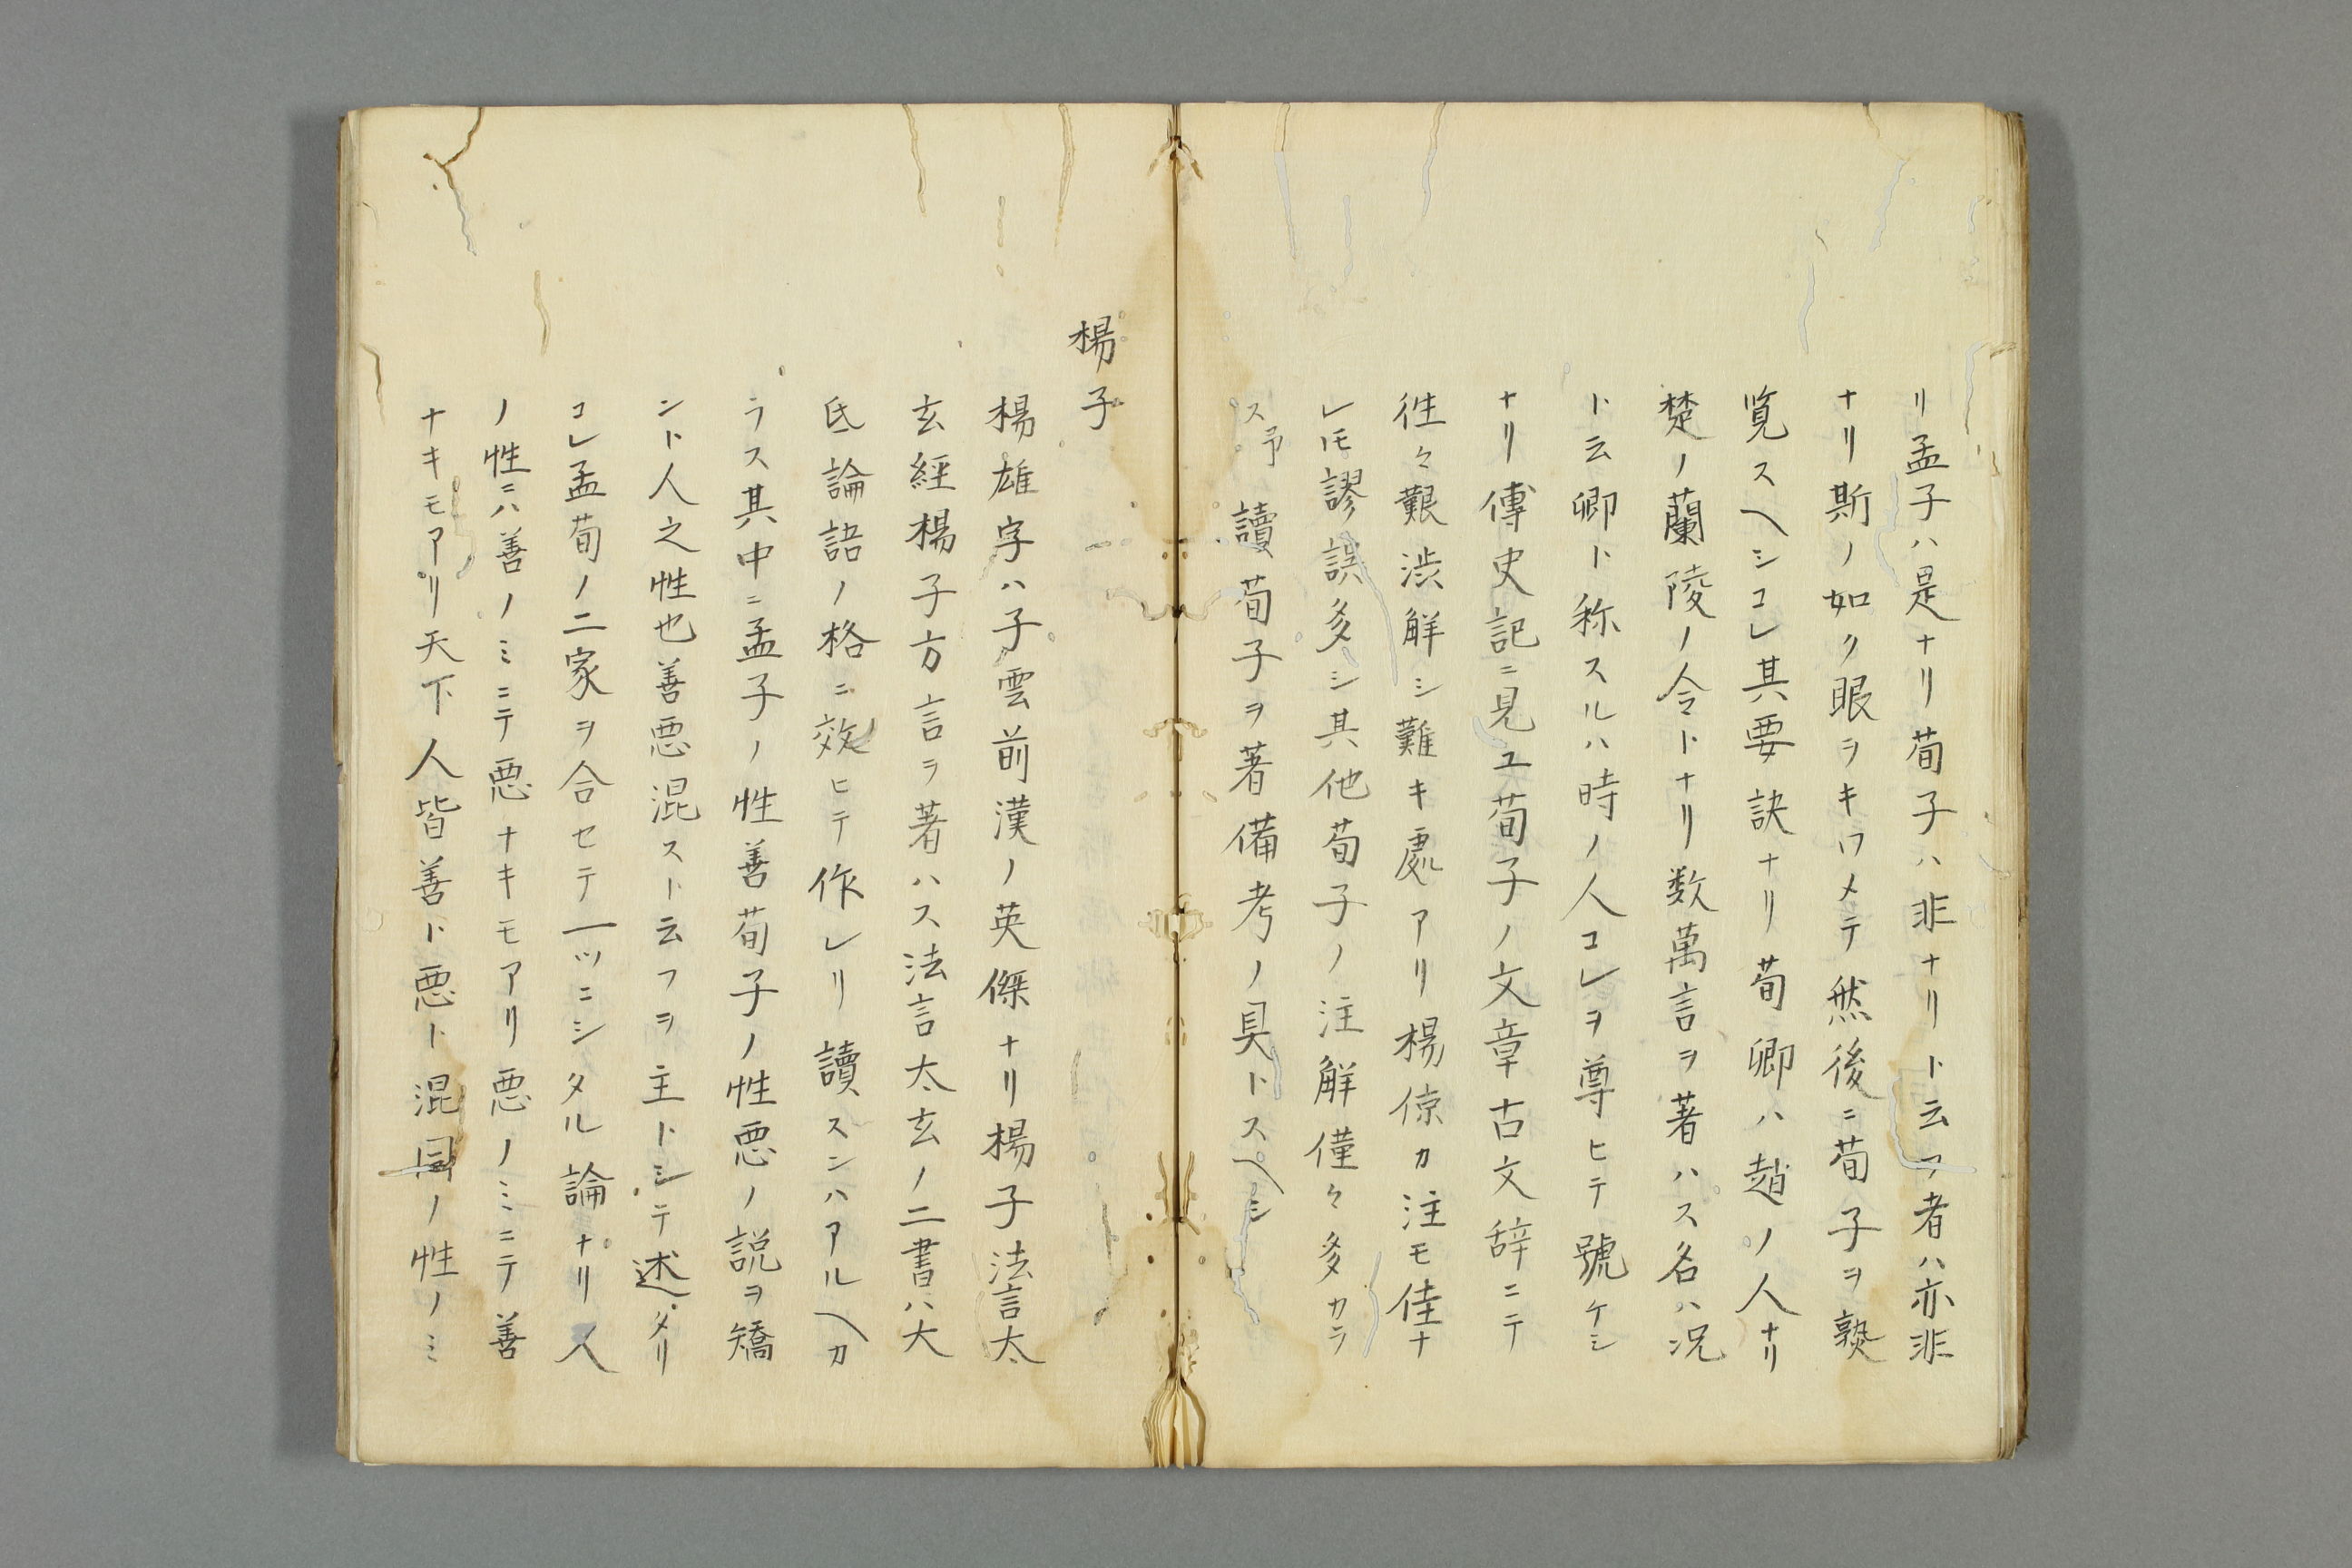 リ孟子ハ是ナリ荀子ハ非ナリト云フ者ハ亦非
ナリ斯ノ如ク眼ヲキワメテ然後ニ荀子ヲ熟
覧スヘシコレ其要訣ナリ荀卿ハ趙ノ人ナリ
楚ノ蘭陵ノ令トナリ数萬言ヲ著ハス名ハ况
ト云卿ト称スルハ時ノ人コレヲ尊ヒテ號ケシ
ナリ傳史記ニ見ユ荀子ノ文章古文辞ニテ
徃々艱渋觧シ難キ處アリ楊倞カ注モ佳ナ
レ𪜈謬誤多シ其他荀子ノ注觧僅々多カラ
ス予讀荀子ヲ著備考ノ具トスヘシ
楊子
楊雄字ハ子雲前漢ノ英傑ナリ楊子法言太
玄經楊子方言ヲ著ハス法言太玄ノ二書ハ大
氐論語ノ格ニ效ヒテ作レリ讀スンハアルヘカ
ラス其中ニ孟子ノ性善荀子ノ性悪ノ説ヲ矯
ント人之性也善悪混スト云フヲ主トシテ述タリ
コレ孟荀ノ二家ヲ合セテ一ツニシタル論ナリ人
ノ性ニハ善ノミニテ悪ナキモアリ悪ノミニテ善
ナキモアリ天下人皆善ト悪ト混同ノ性ノミ